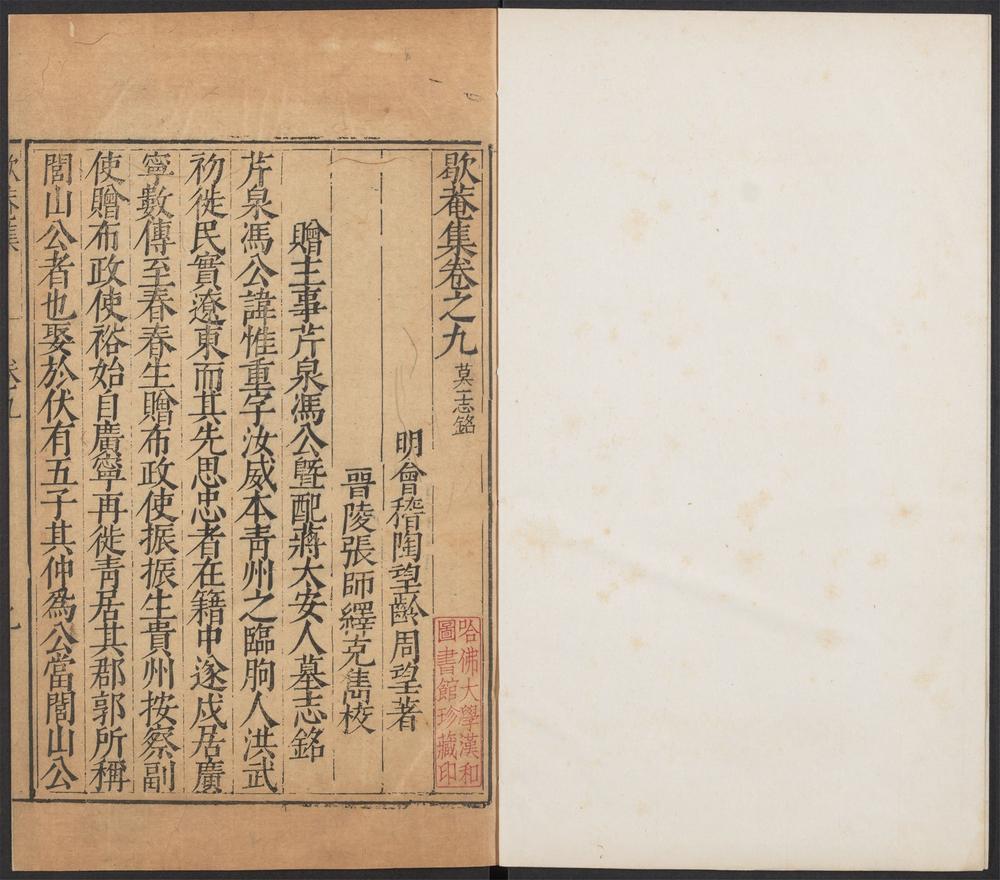 歇菴集卷之九 墓志銘
明會稽陶望齡周望著
晉陵張師繹克雋校
贈主事芹泉馮公曁配蔣太安人墓志銘
芹泉馮公諱惟重字汝威本青州之臨朐人洪武
初徙民實遼東而其先思忠者在籍中遂戍居廣
寧數傳至春春生贈布政使振振生貴州按察副
使贈布政使裕始自廣寧再徙青居其郡郭所稱
閭山公者也娶於伏有五子其仲爲公當閭山公
哈佛大學漢和
圖書館珍藏印